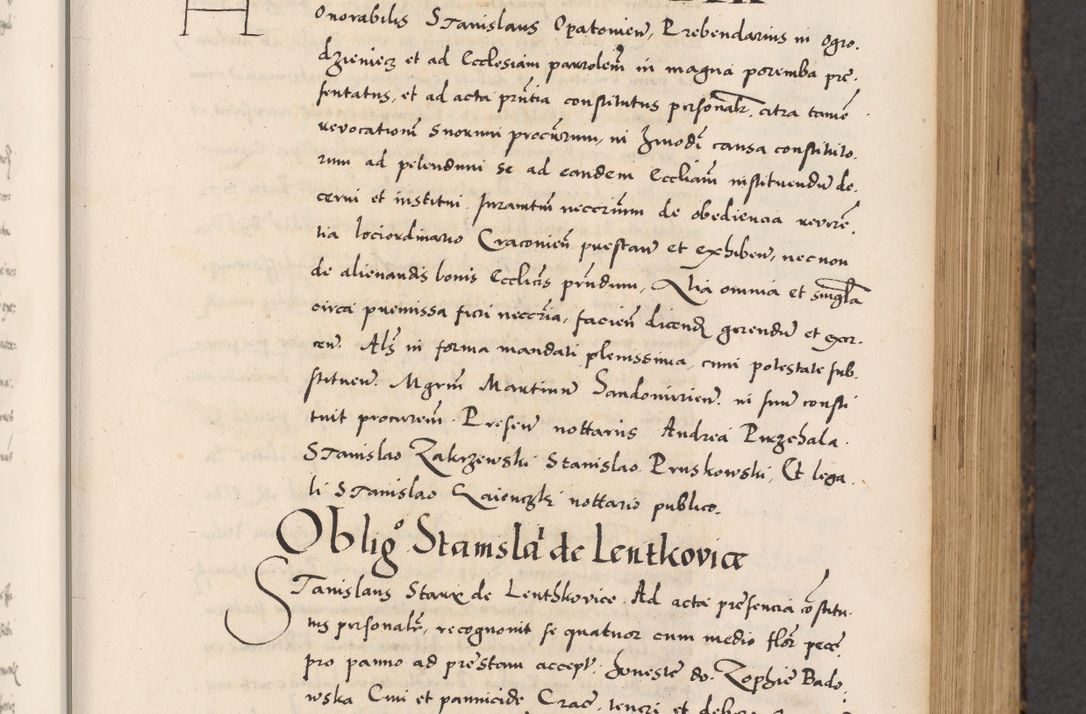 Honorabilis Stanislaus Opatovien, Prebendarius in Ogro.
dzieniecz et ad Ecclesiam parrolem in magna poremba pre.
sentatus, et ad acta prntia constitutus personalr, citra tamē
revocationem suorum procurum, in hmodi causa constituto.
rum ad petendum se ad eandem Eccliam instituendū de.
cerni et institui. Juramtum neccrium de obediencia reverē.
tia lociordinario Cracovien prestare et exhibere, necnon
de alienandis bonis Ecclicis prndum, Alia omnia et singla
circa premissa fieri neccria, facien dicend gerendū et exer.
cen. Als in forma mandati plenissima, cum potestate sub.
stituen. Mgrum Martinum Sandomirien. in suum consti
tuit procurem. Presen nottariis Andrea Przechala.
Stanislao Zakrzewski Stanislao Pruskowski, Et lega
li Stanislao Zaionczk nottario publico.
Obligo Stanislai de Lentkovice
Stanislaus Starx de Lenthkovice. Ad acta presencia cōstitu.
tus personalr, recognovit se quatuor cum medio flor pecc
pro panno ad prestam accept. honeste do. Zophie Bado.
wska Civi et pannicide Crac, teneri et debere